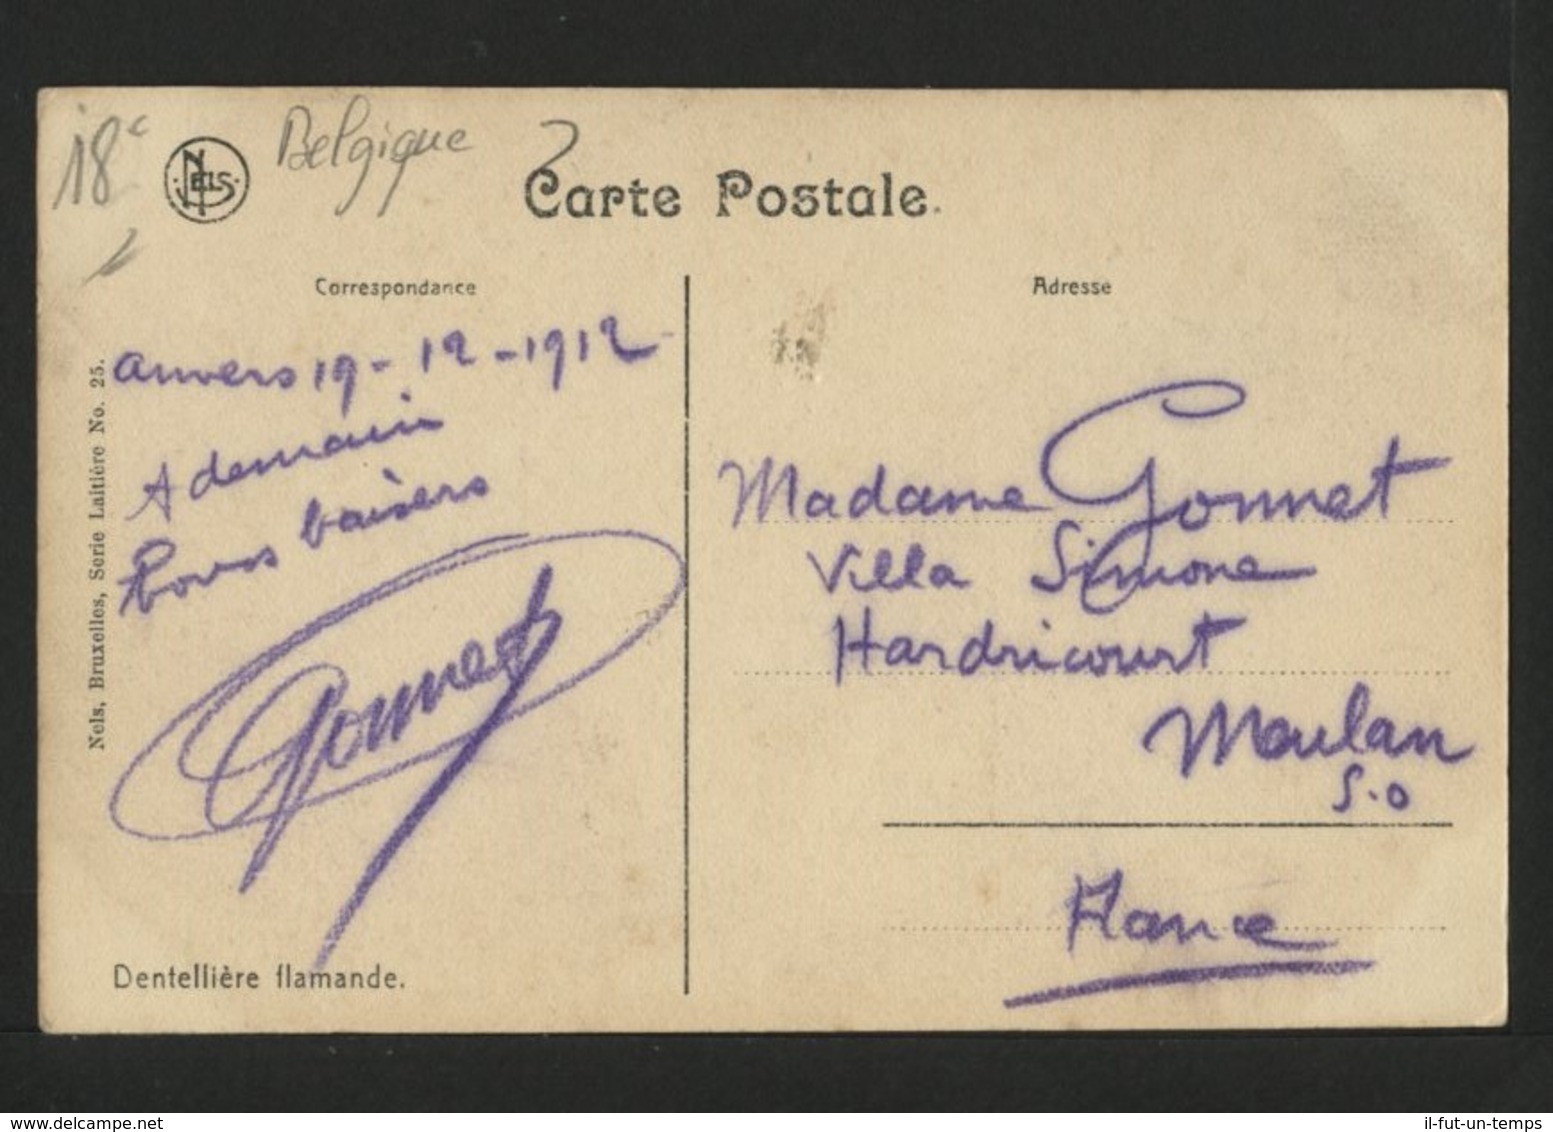 18c
NELS
Belgique
Carte Postale.
Correspondance
Adresse
Anvers 19-12-1912
A demain
bons baisers
Gonnet
Madame Gonnet
Villa Simone
Hardricourt
Meulan
S.O
France
Nels, Bruxelles, Serie Laitière No. 25.
Dentellière flamande.
www.delcampe.net
il-fut-un-temps